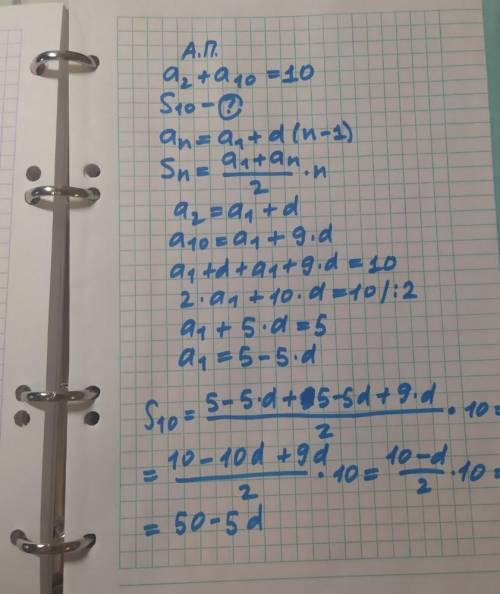 А.П.
a₂ + a₁₀ = 10
S₁₀ - ?
aₙ = a₁ + d (n-1)
Sₙ = (a₁ + aₙ)/2 · n
a₂ = a₁ + d
a₁₀ = a₁ + 9·d
a₁ + d + a₁ + 9·d = 10
2·a₁ + 10·d = 10 /:2
a₁ + 5·d = 5
a₁ = 5 - 5·d
S₁₀ = (5 - 5·d + 5 - 5d + 9·d)/2 · 10 =
= (10 - 10d + 9d)/2 · 10 = (10 - d)/2 · 10 =
= 50 - 5d